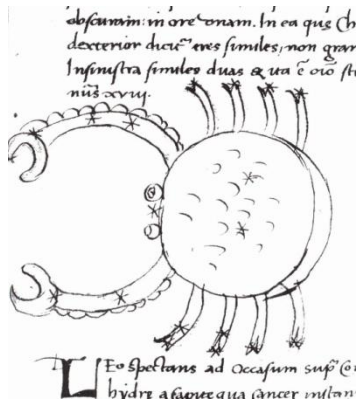 obscuram: in ore ᷑onam. In ea quę Ch
dexterior dicit᷑ tres similes, non gran
In sinistra similes duas & ita ē oĩo ste
nũs xviii.
LEo spectans ad occasum sup̃ Cor
hydrę a capite qua Cancer instan